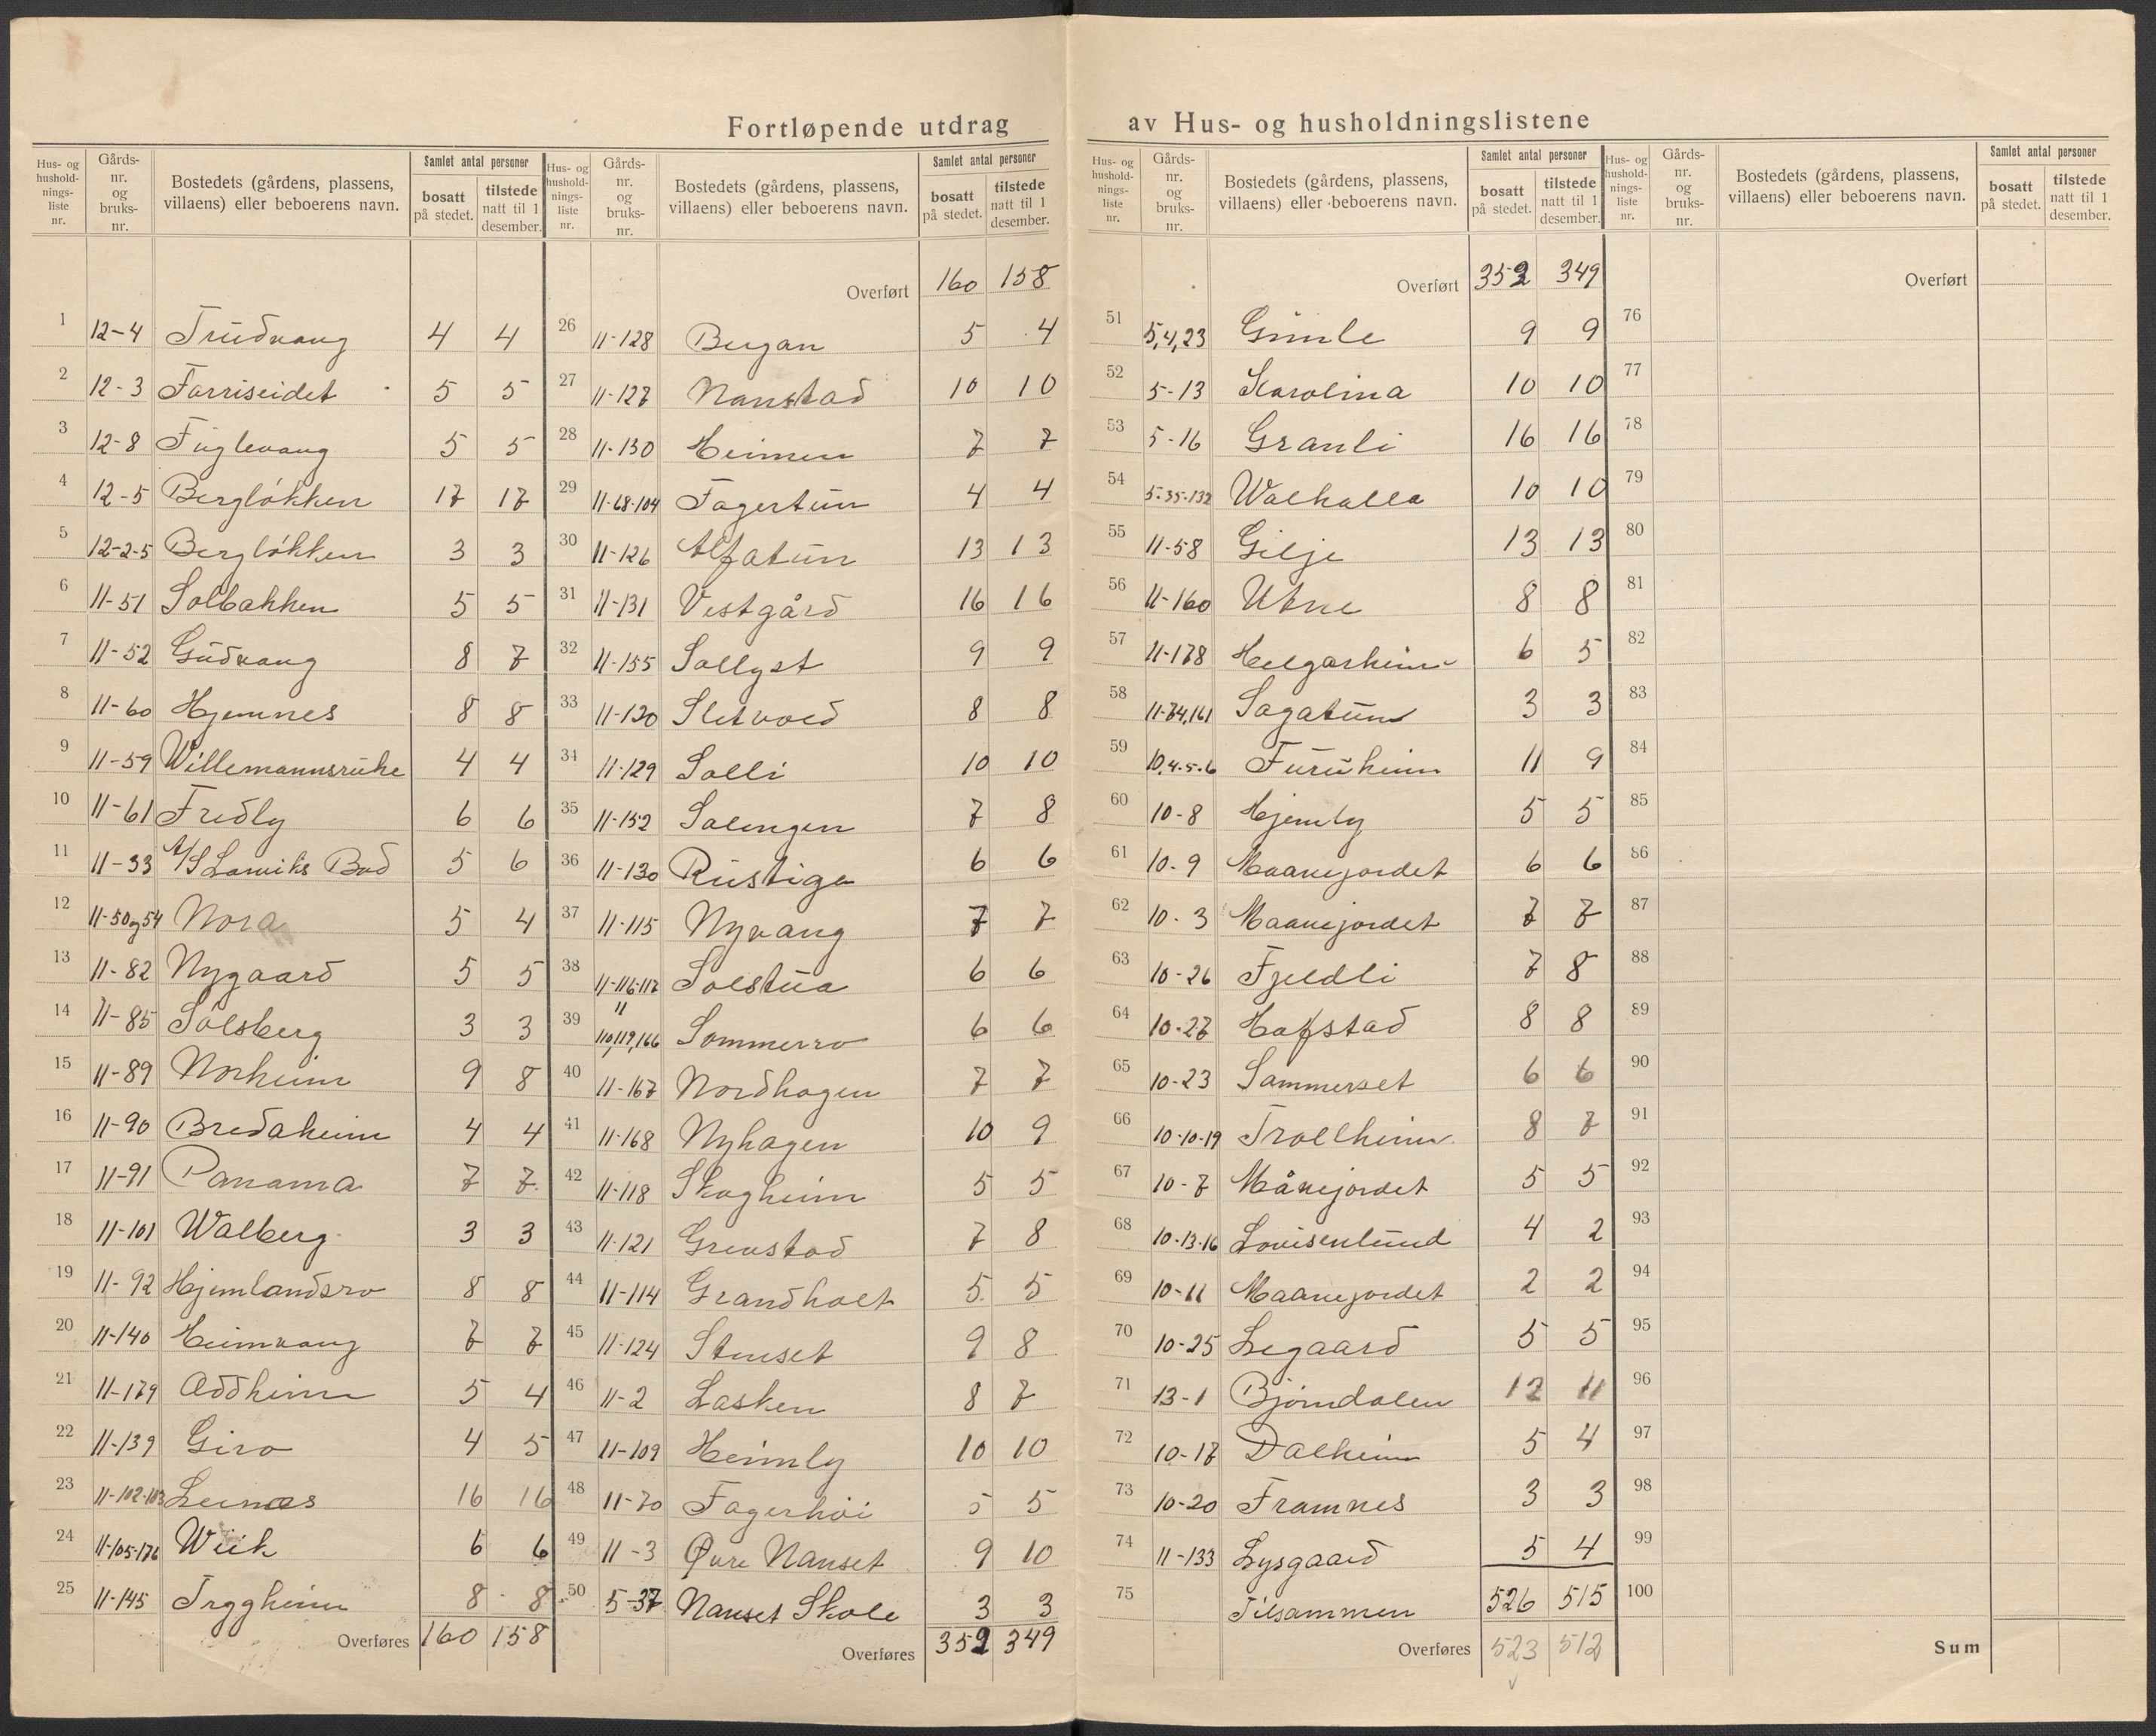 Fortløpende utdrag av Hus- og husholdningslistene
Hus- og husholdnings-liste nr. Gårds-nr. og bruks-nr. Bostedets (gårdens, plassens, villaens) eller beboerens navn. Samlet antal personer bosatt på stedet. tilstede natt til 1 desember.
1 12-4 Trudvang 4 4
2 12-3 Farriseidet 5 5
3 12-8 Fuglevang 5 5
4 12-5 Bergløkken 17 17
5 12-2-5 Bergløkken 3 3
6 11-51 Solbakken 5 5
7 11-52 Gudvang 8 7
8 11-60 Hjemnes 8 8
9 11-59 Willemannsruhe 4 4
10 11-61 Fredly 6 6
11 11-33 A/S Larviks Bad 5 6
12 11-50og54 Nora 5 4
13 11-82 Nygaard 5 5
14 11-85 Solsberg 3 3
15 11-89 Norheim 9 8
16 11-90 Bredaheim 4 4
17 11-91 Panama 7 7
18 11-101 Walberg 3 3
19 11-92 Hjemlandsro 8 8
20 11-140 Heimvang 7 7
21 11-179 Oddheim 5 4
22 11-139 Giro 4 5
23 11-102-103 Leinæs 16 16
24 11-105-176 Wiik 6 6
25 11-145 Tryggheim 8 8
Overføres 160 158
Hus- og husholdnings-liste nr. Gårds-nr. og bruks-nr. Bostedets (gårdens, plassens, villaens) eller beboerens navn. Samlet antal personer bosatt på stedet. tilstede natt til 1 desember.
Overført 160 158
26 11-128 Bergan 5 4
27 11-127 Nanstad 10 10
28 11-130 Heimen 7 7
29 11-68-104 Fagertun 4 4
30 11-126 Alfatun 13 13
31 11-131 Vestgård 16 16
32 11-155 Sollyst 9 9
33 11-120 Sletvold 8 8
34 11-129 Solli 10 10
35 11-152 Solengen 7 8
36 11-130 Rustiga 6 6
37 11-115 Nyvang 7 7
38 11-116-117 Solstua 6 6
39 11 110,119,166 Sommerro 6 6
40 11-167 Nordhagen 7 7
41 11-168 Nyhagen 10 9
42 11-118 Skogheim 5 5
43 11-121 Grenstad 7 8
44 11-114 Grandholt 5 5
45 11-124 Stenset 9 8
46 11-2 Lasken 8 7
47 11-109 Heimly 10 10
48 11-70 Fagerhöi 5 5
49 11-3 Øvre Nanset 9 10
50 5-37 Nanset Skole 3 3
Overføres 352 349
Hus- og husholdnings-liste nr. Gårds-nr. og bruks-nr. Bostedets (gårdens, plassens, villaens) eller beboerens navn. Samlet antal personer bosatt på stedet. tilstede natt til 1 desember.
Overført 352 349
51 5,4,23 Gimle 9 9
52 5-13 Karolina 10 10
53 5-16 Granli 16 16
54 5-35-132 Walhalla 10 10
55 11-58 Gilje 13 13
56 11-160 Utne 8 8
57 11-178 Helgarheim 6 5
58 11-74,161 Sagatun 3 3
59 10,4-5-6 Furuheim 11 9
60 10-8 Hjemly 5 5
61 10-9 Maanejordet 6 6
62 10-3 Maanejordet 7 7
63 10-26 Fjeldli 7 8
64 10-27 Hafstad 8 8
65 10-23 Sommerset 6 6
66 10-10-19 Trollheim 8 7
67 10-7 Månejordet 5 5
68 10-13-16 Lovisenlund 4 2
69 10-11 Maanejordet 2 2
70 10-25 Legaard 5 5
71 13-1 Bjørndalen 12 11
72 10-17 Dalheim 5 4
73 10-20 Framnes 3 3
74 11-133 Lysgaard 5 4
75 Tilsammen 526 515
Overføres 523 512
Hus- og husholdnings-liste nr. Gårds-nr. og bruks-nr. Bostedets (gårdens, plassens, villaens) eller beboerens navn. Samlet antal personer bosatt på stedet. tilstede natt til 1 desember.
Overført
76
77
78
79
80
81
82
83
84
85
86
87
88
89
90
91
92
93
94
95
96
97
98
99
100
Sum